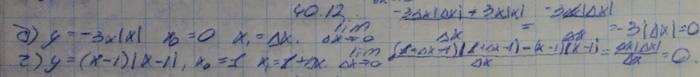 40.12.
б) y = -3x|x| x₀ = 0 x₁ = Δx. lim Δx→0 (-3Δx|Δx| + 3x|x|)/Δx = (-3Δx|Δx|)/Δx = -3|Δx| = 0
г) y = (x-1)|x-1|, x₀ = 1 x₁ = 1 + Δx. lim Δx→0 ((1+Δx-1)|1+Δx-1| - (x-1)|x-1|)/Δx = (Δx|Δx|)/Δx = 0.